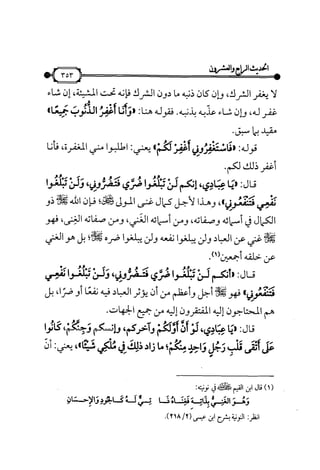 الحديث الرابع والعشرون
٣٥٣
لا يغفر الشرك، وإن كان ذنبه ما دون الشرك فإنه تحت المشيئة، إن شاء
غفر له، وإن شاء عذّبه بذنبه. فقوله هنا: «وَأَنَا أَغْفِرُ الذُّنُوبَ جَمِيعًا»
مقيد بما سبق.
قوله: «فَاسْتَغْفِرُونِي أَغْفِرْ لَكُمْ» يعني: اطلبوا مني المغفرة، فأنا
أغفر ذلك لكم.
قال: «يَا عِبَادِي، إِنكم لَنْ تَبْلُغُوا ضُرِّي فَتَضُرُّونِي، وَلَنْ تَبْلُغُوا
نَفْعِي فَتَنْفَعُونِي»، وهذا لأجل كمال غنى المولى ﷻ؛ فإن الله ﷻ ذو
الكمال في أسمائه وصفاته، ومن أسمائه الغني، ومن صفاته الغِنى، فهو
ﷻ غني عن العباد ولن يبلغوا نفعه ولن يبلغوا ضره ﷻ؛ بل هو الغني
عن خلقه أجمعين(١).
قال: «إنكم لَنْ تَبْلُغُوا ضُرِّي فَتَضُرُّونِي، وَلَنْ تَبْلُغُوا نَفْعِي
فَتَنْفَعُونِي» فهو ﷻ أجل وأعظم من أن يؤثر العباد فيه نفعًا أو ضرًا، بل
هم المحتاجون إليه المفتقرون إليه من جميع الجهات.
قال: «يَا عِبَادِي، لَوْ أَنَّ أَوَّلَكُمْ وآخركم، وإنسكم وَجِنَّكُمْ، كَانُوا
عَلَى أَتْقَى قَلْبِ رَجُلٍ وَاحِدٍ مِنْكُمْ؛ ما زاد ذلِكَ فِي مُلْكِي شَيْئًا»، يعني: أنّ
(١) قال ابن القيم في نونيته:
وَهُوَ الغَنِيُّ بِذَاتِهِ فَغِنَاهُ ذَا تِيٌّ لَهُ كَالجُودِ وَالإِحْسَانِ
انظر: النونية بشرح ابن عيسى (٢/ ٢١٨).